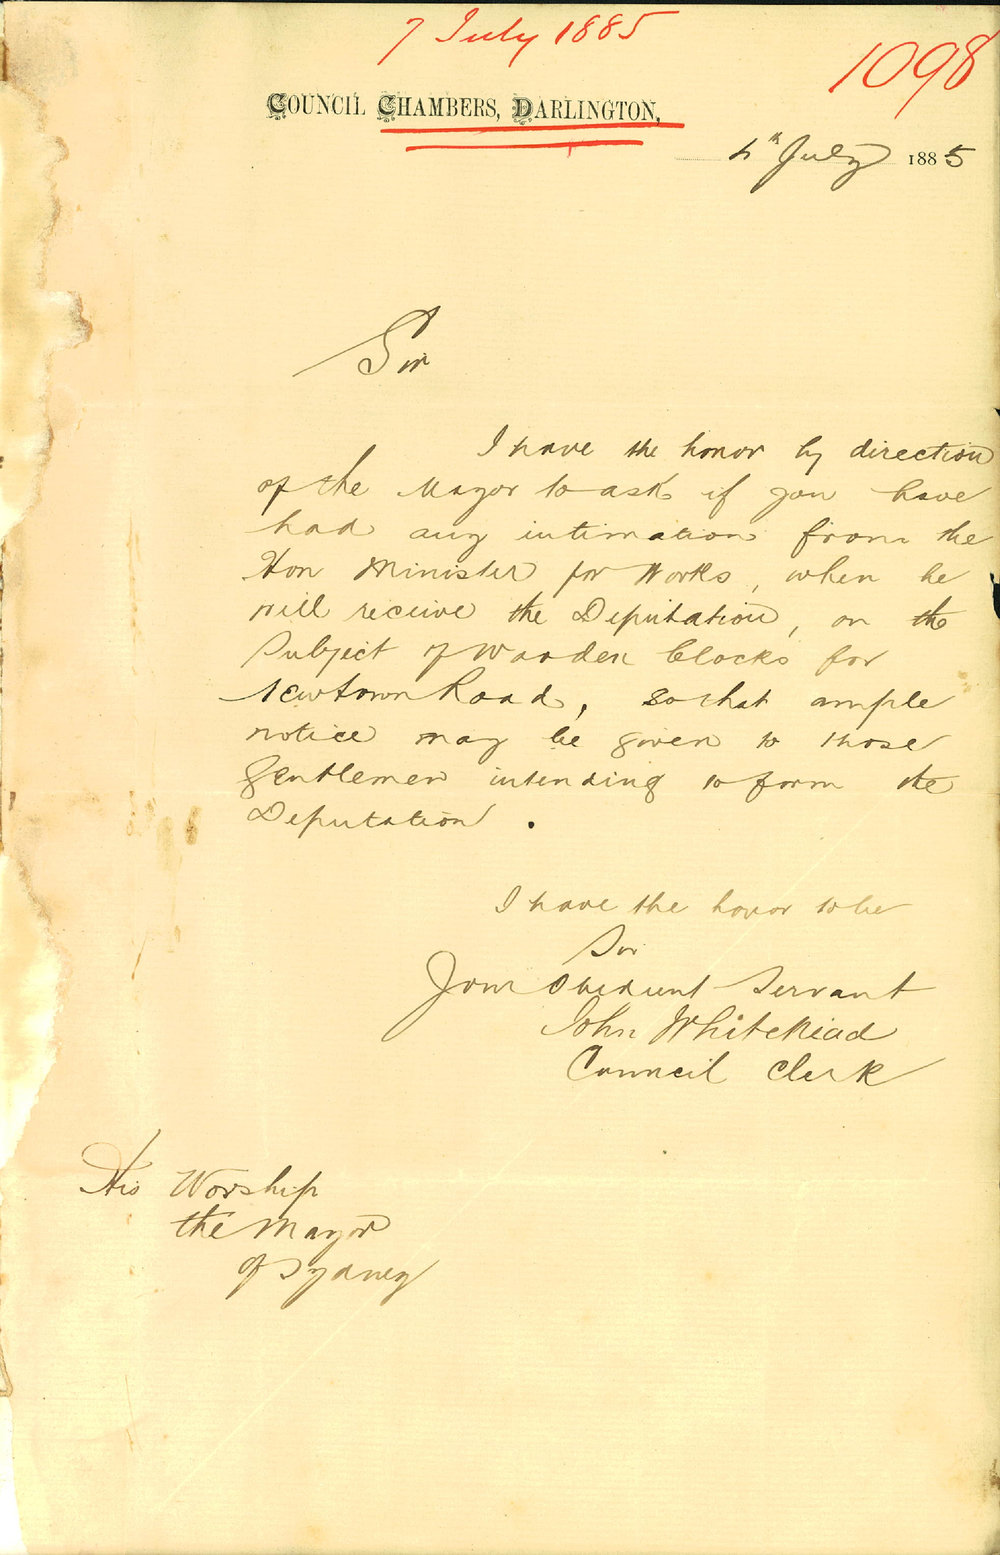 7 July 1885
1098
COUNCIL CHAMBERS, DARLINGTON,
4th July 1885
Sir
I have the honor by direction
of the Mayor to ask if you have
had any intimation from the
Hon Minister for Works, when he
will receive the Deputation, on the
Subject of Wooden blocks for
Newtown Road, so that ample
notice may be given to those
Gentlemen intending to form the
Deputation.
I have the honor to be
Sir
Your Obedient Servant
John Whitehead
Council Clerk
His Worship
the Mayor
of Sydney